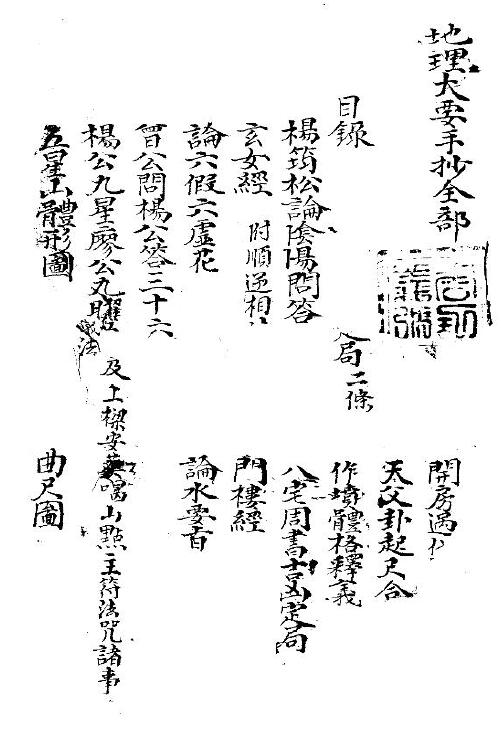 地理大要手抄全部
目錄
楊筠松論陰陽問答
玄女經 附順逆相
論六假六虛花
曾公問楊公答三十六
局二條
楊公九星廖公九曜
五星山體形圖
開房遇
天父卦起尺合
作墳體格釋義
八宅周書吉凶定局
門樓經
論水要旨
及上樑安葬喝山點主符法咒諸事
曲尺圖